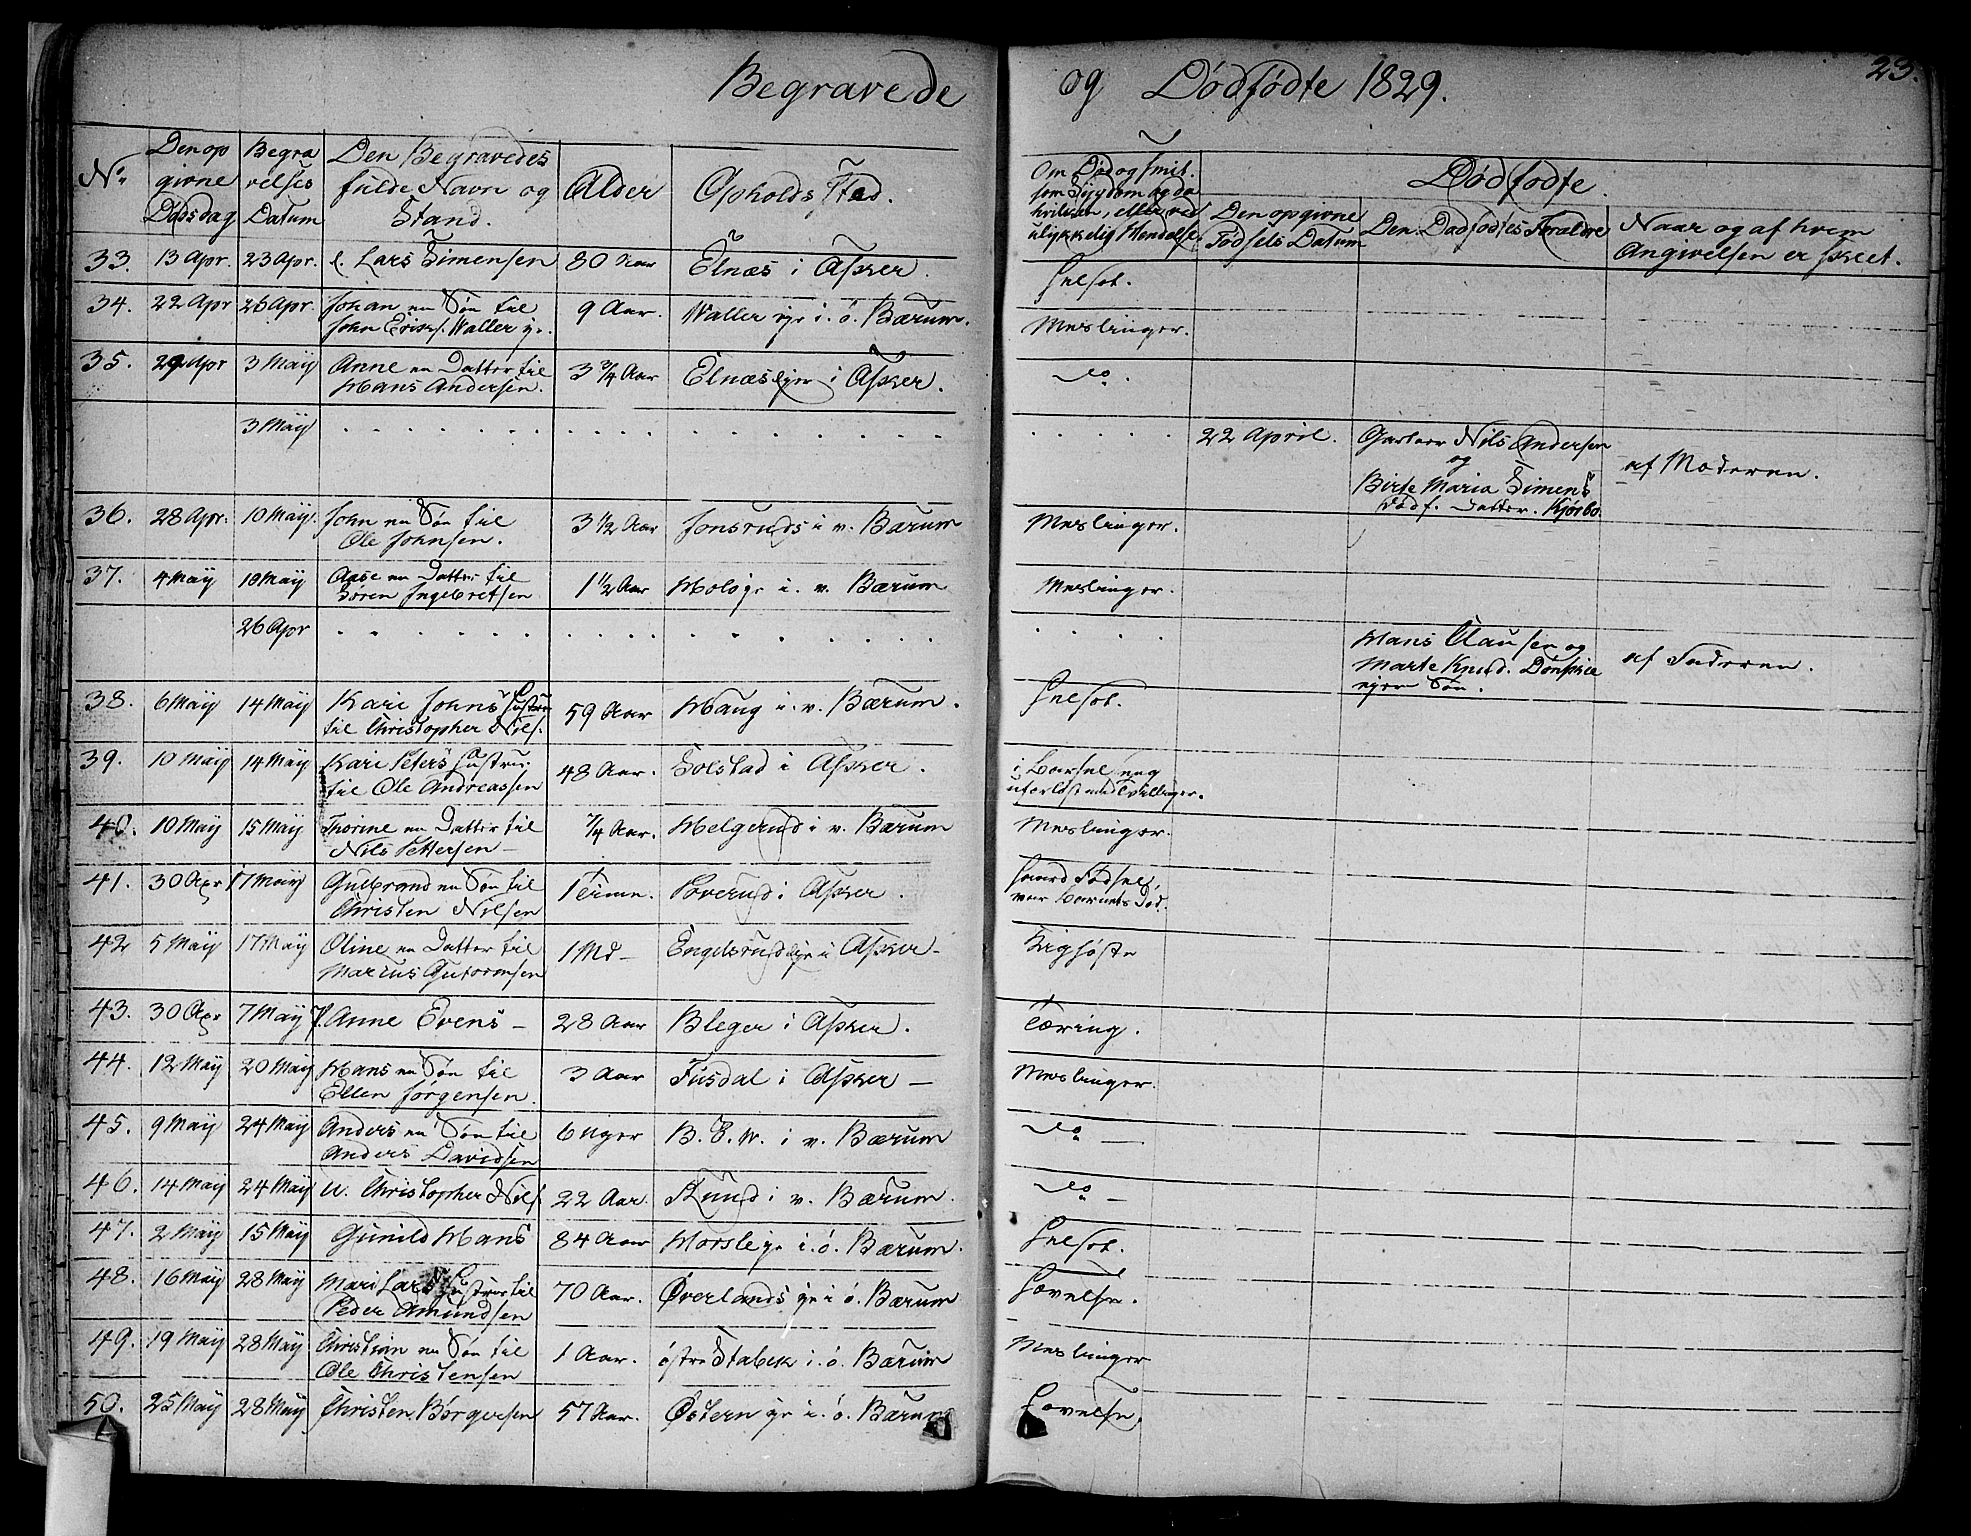 Begravede og Dødfødte 1829.
23.
No.
Den op
givne
Dødsdag
Begra
velses
Datum
Den Begravedes
fulde Navn og
Stand.
Alder
Opholds Sted.
Om Død og smit
som Sygdom og da
hvilken, eller ved
ulykkelig Hendelse.
Dødfødte.
Den opgivne
Fødsels Datum
Den Dødfødtes Forældre
Naar og af hvem
Angivelsen er skeet.
33. 13 Apr. 23 Apr. Lars Simensen 80 Aar Elnæs i Asker.
34. 22 Apr 26 Apr. Johan en Søn til 9 Aar. Waller eje i ø. Bærum. Meslinger.
John Eriks. Waller ye.
35. 29 Apr 3 Maij Anne en Datter til 3 3/4 Aar Elnæs eje i Asker. do.
Hans Andersen.
3 Maij . . . . 22 April. Nils Andersen
og af Moderen.
Birte Maria Simens
Dødf. Datter. Kjørbo.
36. 28 Apr. 10 Maij. John en Søn til 3 1/2 Aar Jonsruds i v. Bærum Meslinger.
Ole Johnsen.
37. 4 Maij 10 Maij Aase en Datter til 1 1/2 Aar i v. Bærum Meslinger.
Søren Ingebretsen
26 Apr . . . . Hans Clausen og
Marte Knud. Dønskie af Faderen.
ejer Søn.
38. 6 Maij 14 Maij Kari Johns Hustrue 59 Aar Haug i v. Bærum.
til Christopher Nils.
39. 10 Maij 14 Maij Kari Peters Hustrue 48 Aar. Solstad i Asker. i Barsel seng
til Ole Andreassen uforløst med Tvillinger.
40. 10 Maij 15 Maij Thorine en Datter til 7/4 Aar. Helgerud i v. Bærum Meslinger.
Nils Pettersen
41. 30 Apr 17 Maij Gulbrand en Søn til 1 Time. Poverud i Asker. haard Fødsel
Christen Nilsen var Barnets Død.
42 5 Maij 17 Maij Oline en Datter til 1 Md Engelsrud eje i Asker Kighoste
Marius Gutormsen
43. 30 Apr 7 Maij P. Anne Evens 28 Aar Bleger i Asker. Tæring.
44. 12 Maij 20 Maij Hans en Søn til 3 Aar Fusdal i Asker Meslinger.
Ellen Jørgensen.
45. 9 Maij 24 Maij Anders en Søn til 6 Uger B. E. W. i v. Bærum do
Anders Davidsen
46. 14 Maij 24 Maij U. Christopher Nils. 22 Aar. Rud i v. Bærum. do
47. 2 Maij 15 Maij Gunild Hans 84 Aar Horsle ye i ø. Bærum.
48. 16 Maij 28 Maij Mari Lars Hustrue til 70 Aar. Øverlands ye i ø. Bærum Hævelse.
Peder Amundsen
49. 19 Maij 28 Maij Christian en Søn til 1 Aar. østre Stabek i ø. Bærum Meslinger
Ole Christensen
50. 25 Maij 28 Maij Christen Børgersen 57 Aar. Østern ye i ø. Bærum Hævelse.